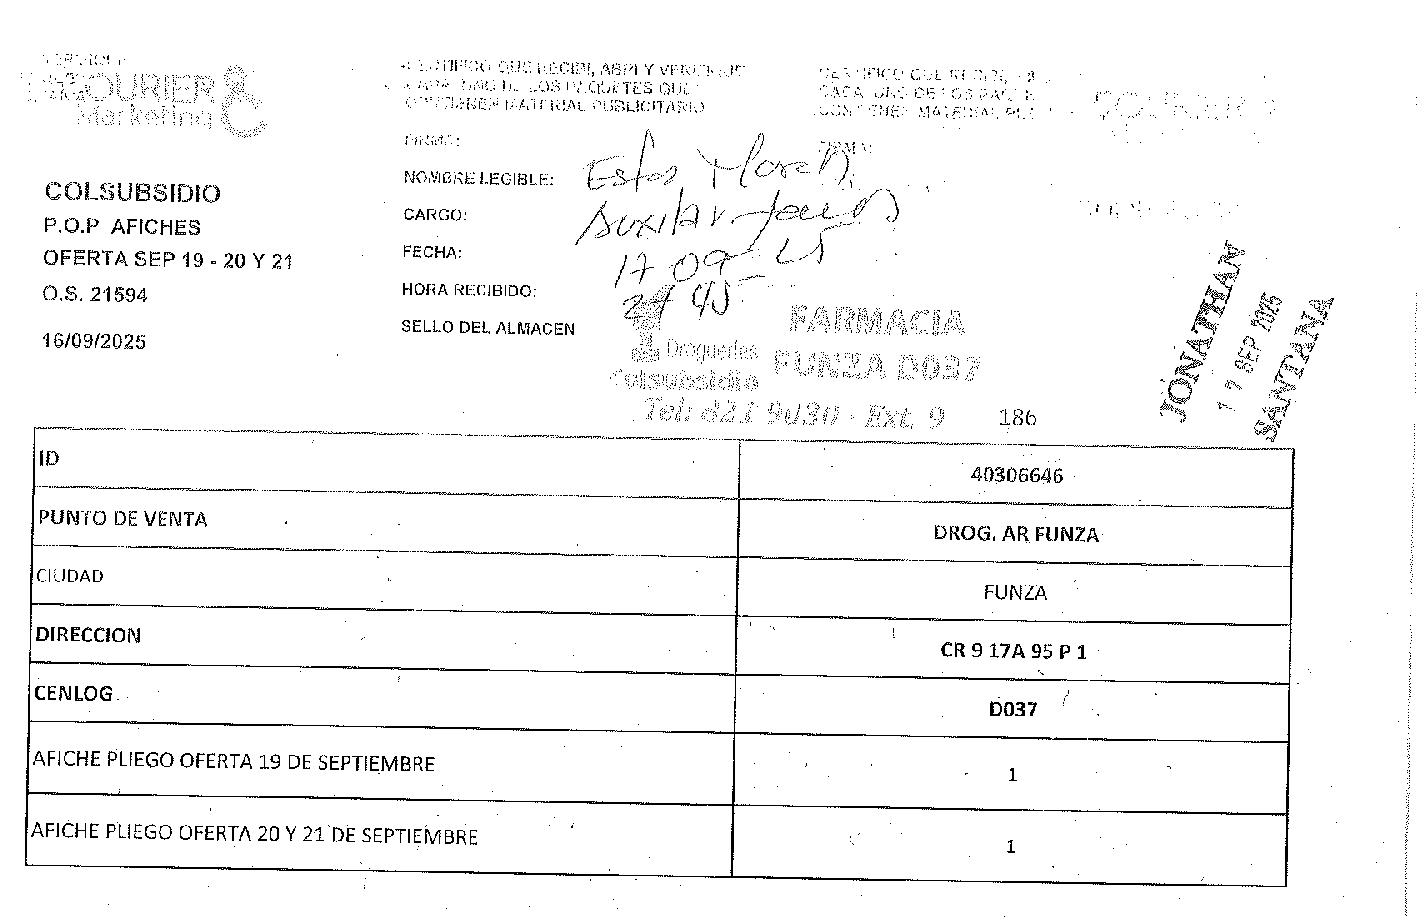 COURIER
Marketing
COLSUBSIDIO
P.O.P AFICHES
OFERTA SEP 19 - 20 Y 21
O.S. 21594
16/09/2025
CERTIFICO QUE RECIBI, ABRI Y VERIFIQUE
CADA UNO DE LOS PAQUETES QUE
CONTIENEN MATERIAL PUBLICITARIO
FIRMA:
NOMBRE LEGIBLE:
CARGO:
Auxiliar
FECHA:
17 09 - 25
HORA RECIBIDO:
SELLO DEL ALMACEN
Droguerías
Colsubsidio
FARMACIA
FUNZA D037
Tel: 821 9030 - Ext. 9
186
CERTIFICO QUE RECIBI,
CADA UNO DE LOS
CONTIENEN MATERIAL
FIRMA:
COURIER
JONATHAN
17 SEP 2025
SANTANA
ID 40306646
PUNTO DE VENTA DROG. AR FUNZA
CIUDAD FUNZA
DIRECCION CR 9 17A 95 P 1
CENLOG D037
AFICHE PLIEGO OFERTA 19 DE SEPTIEMBRE 1
AFICHE PLIEGO OFERTA 20 Y 21 DE SEPTIEMBRE 1